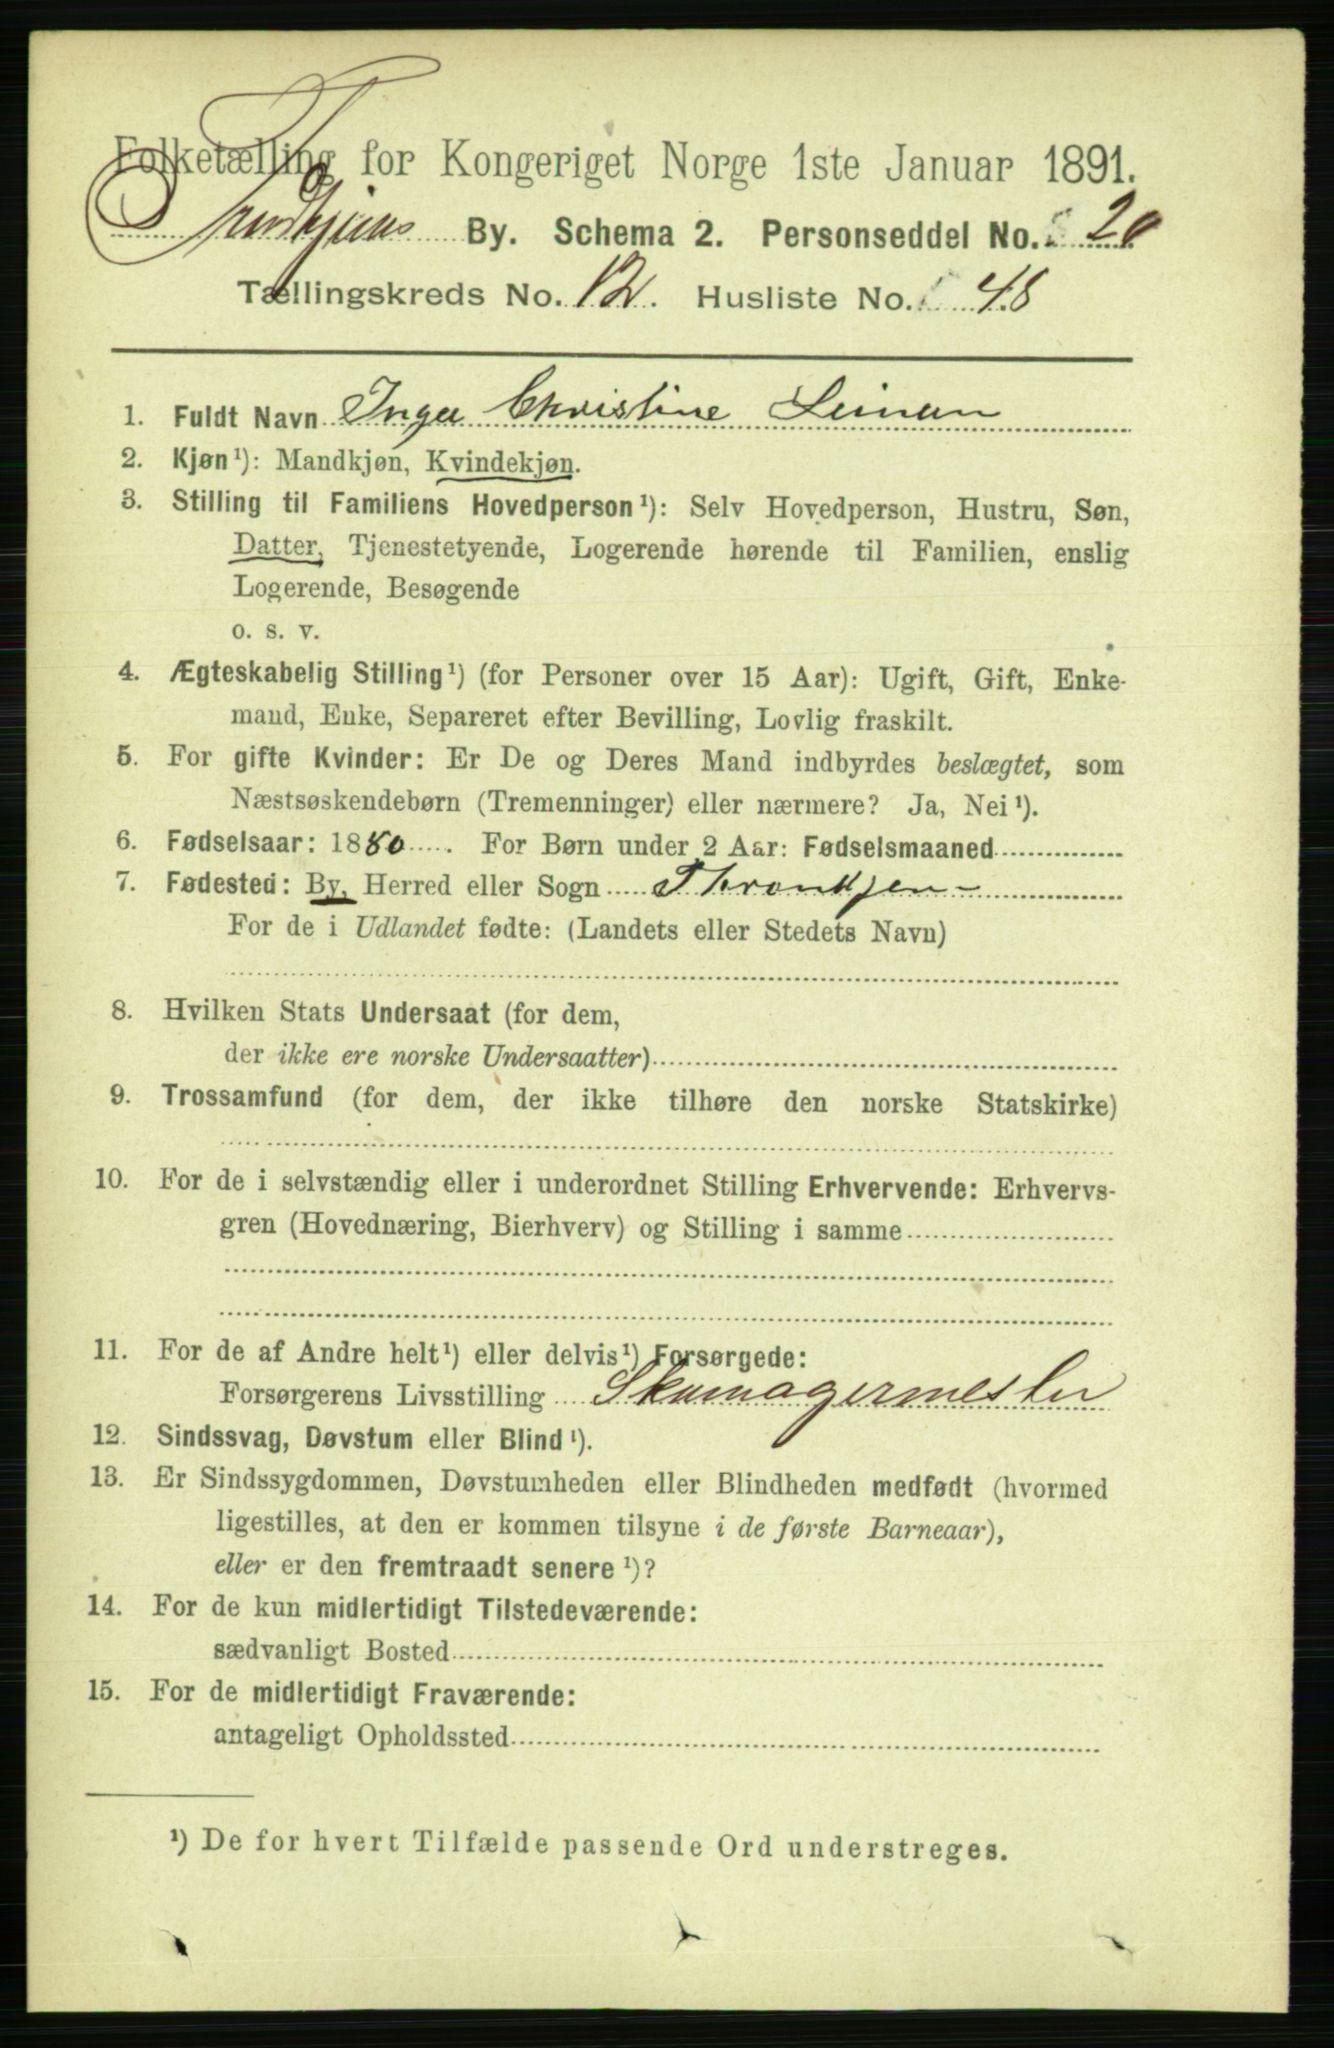 Folketælling for Kongeriget Norge 1ste Januar 1891.
Trondhjems By. Schema 2. Personseddel No. 20
Tællingskreds No. 12. Husliste No. 48
1. Fuldt Navn Inga Christine Leinan
2. Kjøn¹): Mandkjøn, Kvindekjøn.
3. Stilling til Familiens Hovedperson¹): Selv Hovedperson, Hustru, Søn,
Datter, Tjenestetyende, Logerende hørende til Familien, enslig
Logerende, Besøgende
o. s. v.
4. Ægteskabelig Stilling¹) (for Personer over 15 Aar): Ugift, Gift, Enke-
mand, Enke, Separeret efter Bevilling, Lovlig fraskilt.
5. For gifte Kvinder: Er De og Deres Mand indbyrdes beslægtet, som
Næstsøskendebørn (Tremenninger) eller nærmere? Ja, Nei¹).
6. Fødselsaar: 1880. For Børn under 2 Aar: Fødselsmaaned
7. Fødested: By, Herred eller Sogn Thronhjen
For de i Udlandet fødte: (Landets eller Stedets Navn)
8. Hvilken Stats Undersaat (for dem,
der ikke ere norske Undersaatter)
9. Trossamfund (for dem, der ikke tilhøre den norske Statskirke)
10. For de i selvstændig eller i underordnet Stilling Erhvervende: Erhvervs-
gren (Hovednæring, Bierhverv) og Stilling i samme
11. For de af Andre helt¹) eller delvis¹) Forsørgede:
Forsørgerens Livsstilling Skomagermester
12. Sindssvag, Døvstum eller Blind¹).
13. Er Sindssygdommen, Døvstumheden eller Blindheden medfødt (hvormed
ligestilles, at den er kommen tilsyne i de første Barneaar),
eller er den fremtraadt senere¹)?
14. For de kun midlertidigt Tilstedeværende:
sædvanligt Bosted
15. For de midlertidigt Fraværende:
antageligt Opholdssted
¹) De for hvert Tilfælde passende Ord understreges.